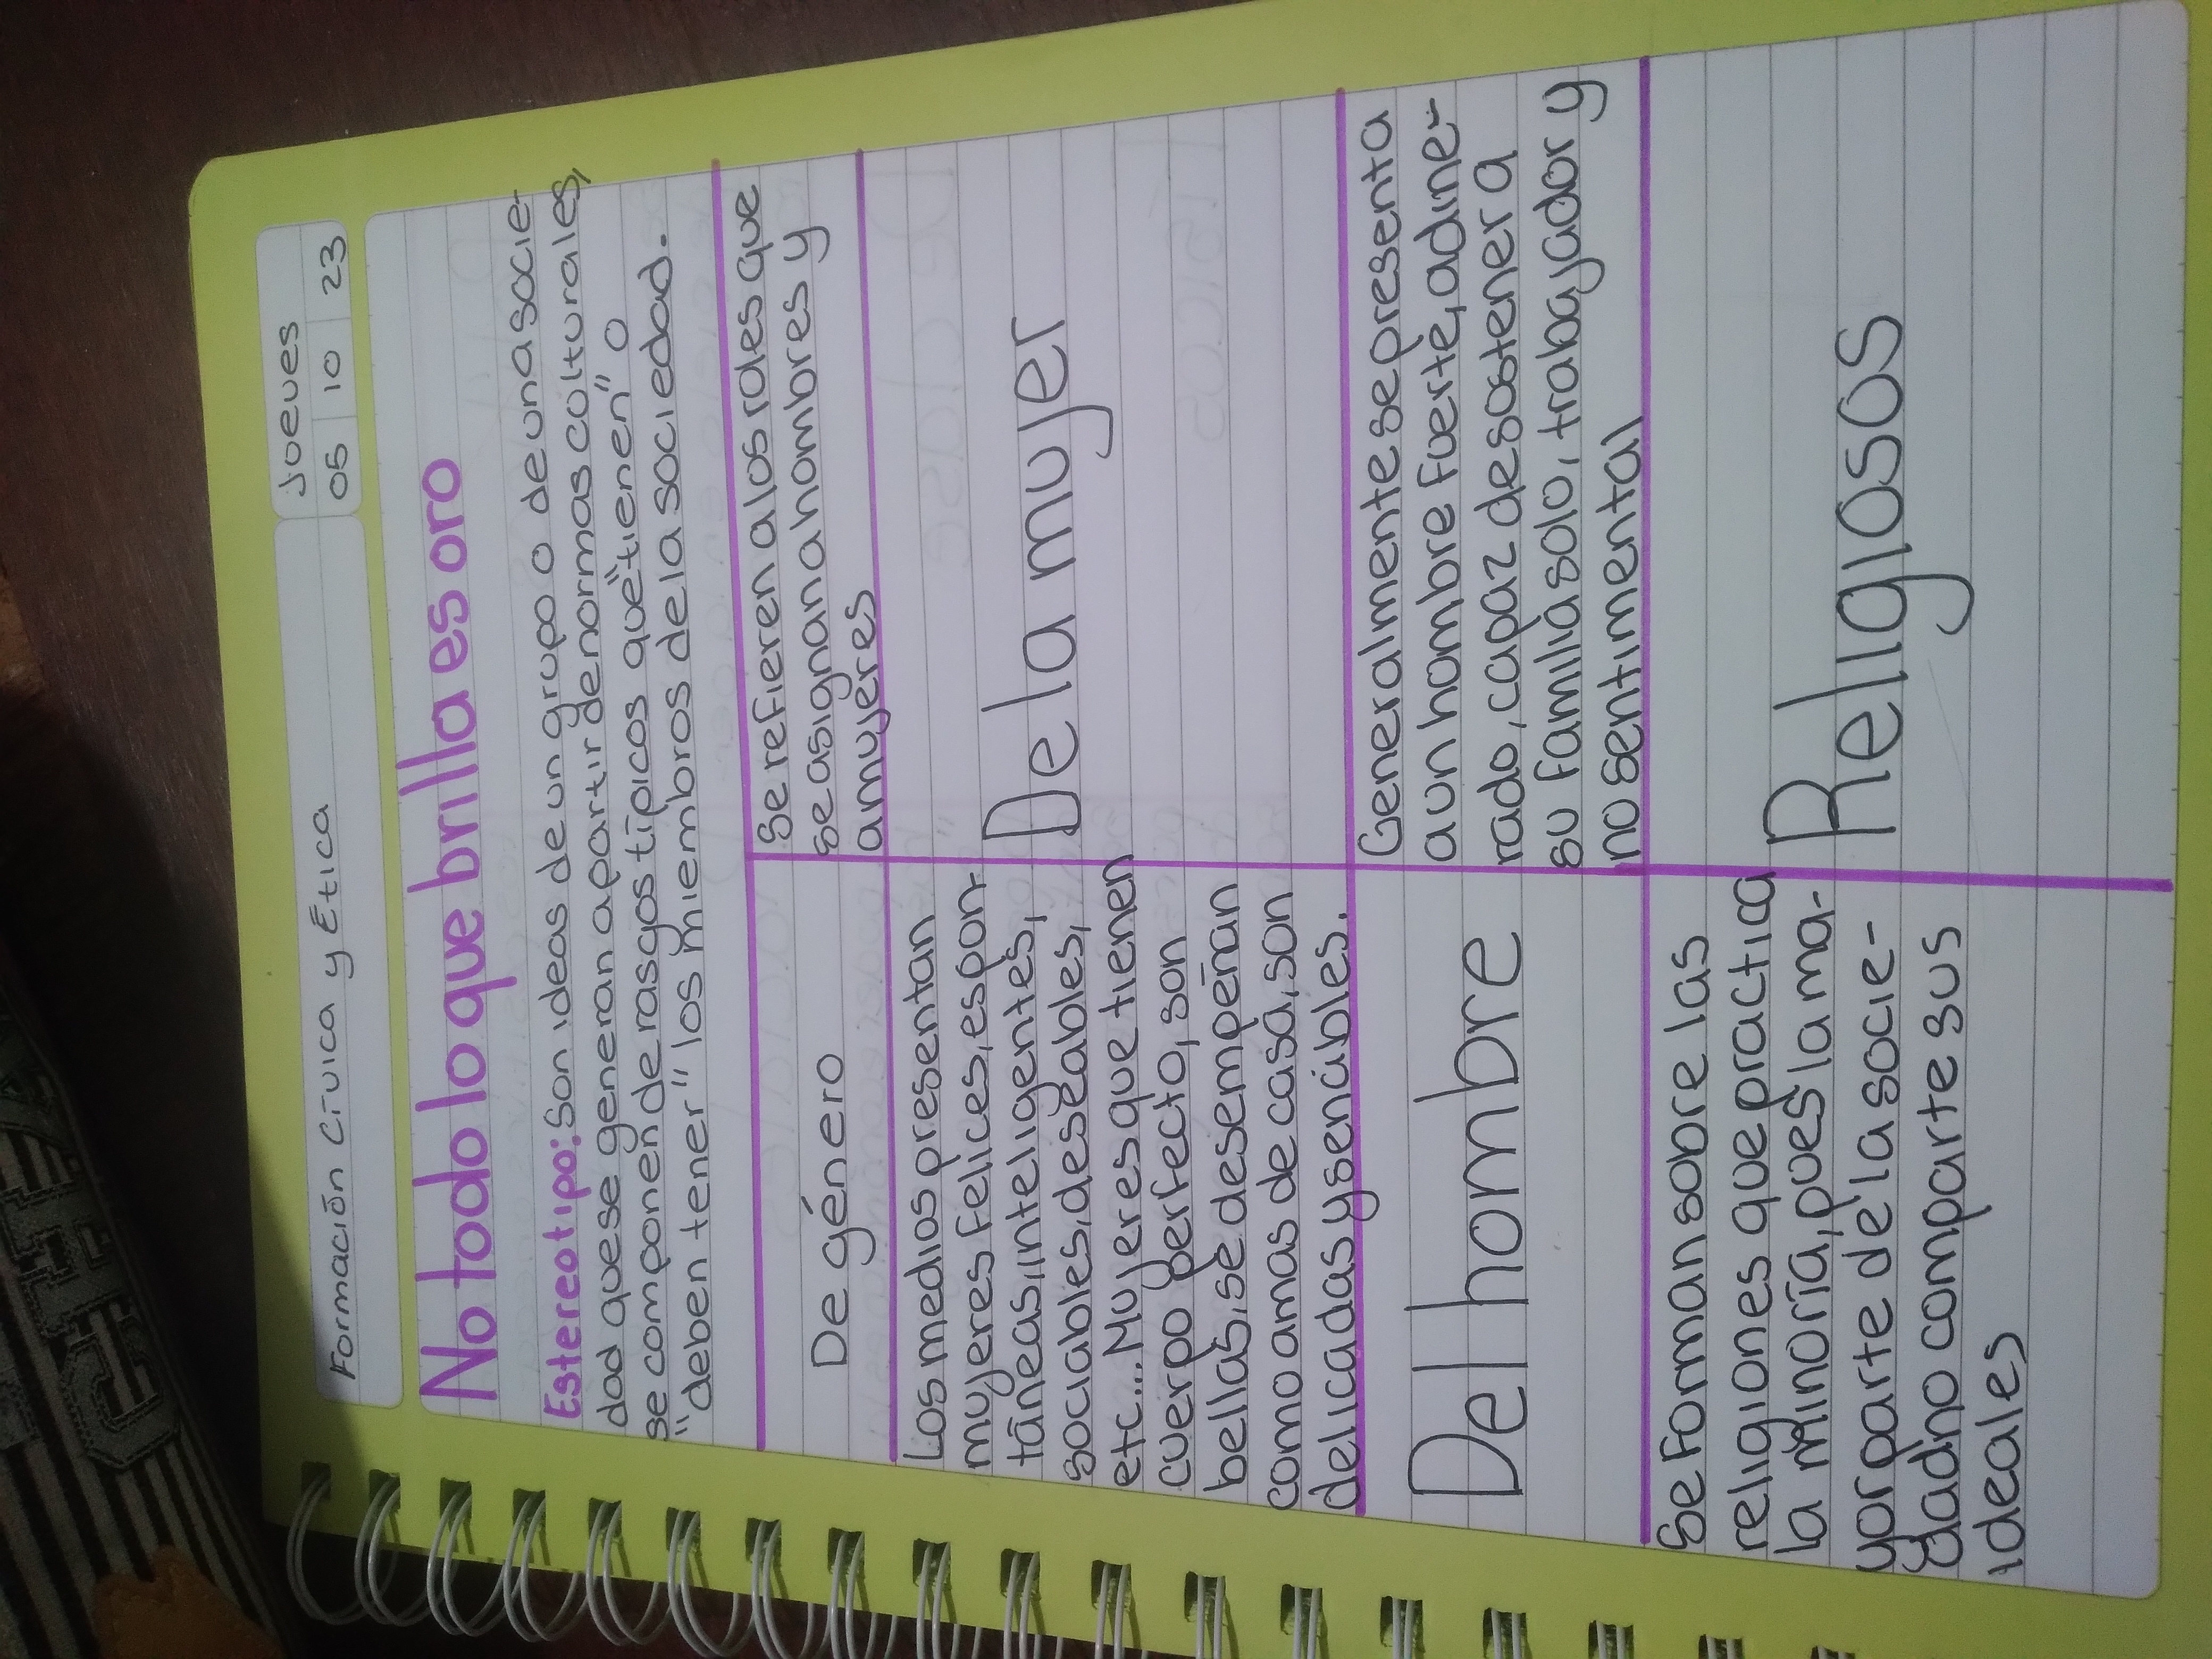 Formación Cívica y Ética
Jueves
05 10 23
No todo lo que brilla es oro
Estereotipo: Son ideas de un grupo o de una socie-
dad que se generan a partir de normas culturales,
se componen de rasgos típicos que "tienen" o
"deben tener" los miembros de la sociedad.
De género
Se refieren a los roles que
se asignan a hombres y
a mujeres
Los medios presentan
mujeres felices, espon-
táneas, inteligentes,
sociables, deseables,
etc.... Mujeres que tienen
cuerpo perfecto, son
bellas, se desempeñan
como amas de casa, son
delicadas y sencibles.
De la mujer
Del hombre
Generalmente se presenta
a un hombre fuerte, adine-
rado, capaz de sostener a
su familia solo, trabajador y
no sentimental
Se forman sobre las
religiones que practica
la minoría, pues la ma-
yor parte de la socie-
dad no comparte sus
ideales
Religiosos